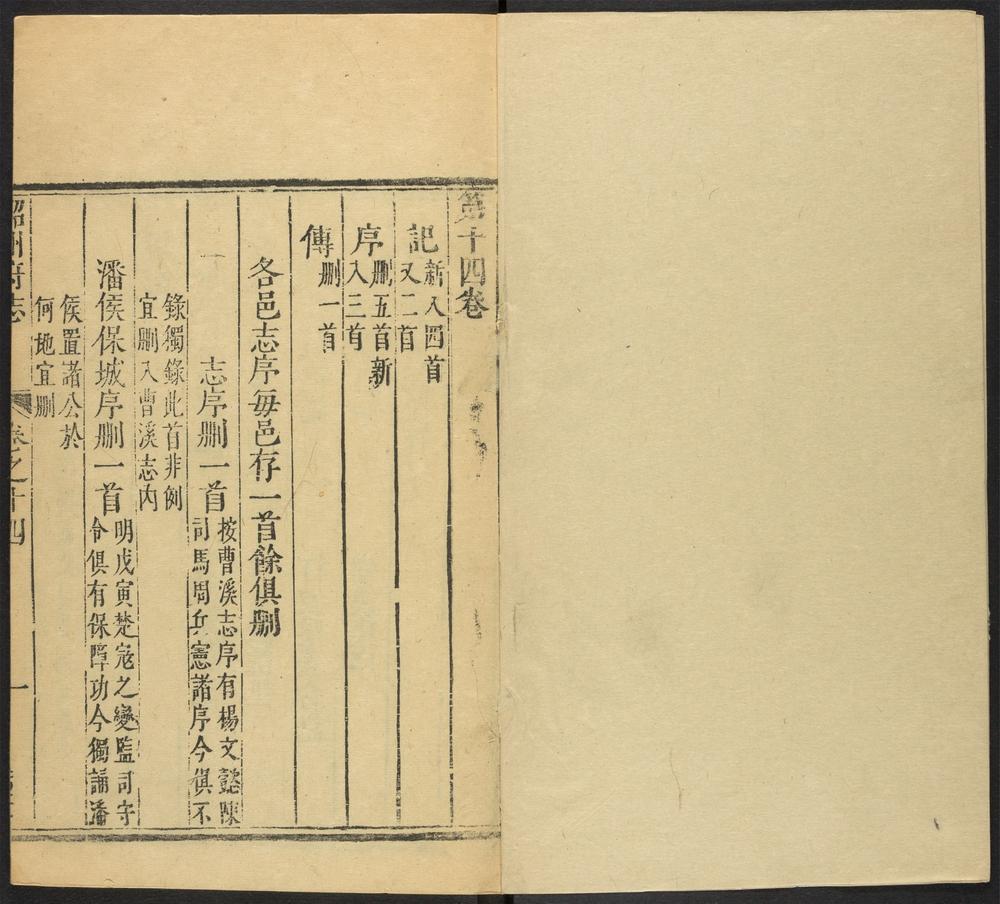 第十四卷
記 新入四首
又二首
序 刪五首新
入三首
傳 刪一首
各邑志序每邑存一首餘俱刪
志序刪一首 按曹溪志序有楊文懿陳
司馬周兵憲諸序今俱不
錄獨錄此首非例
宜刪入曹溪志內
潘侯保城序刪一首 明戊寅楚寇之變監司守
令俱有保障功今獨誦潘
侯置諸公於
何地宜刪
韶州府志
卷之十四
一